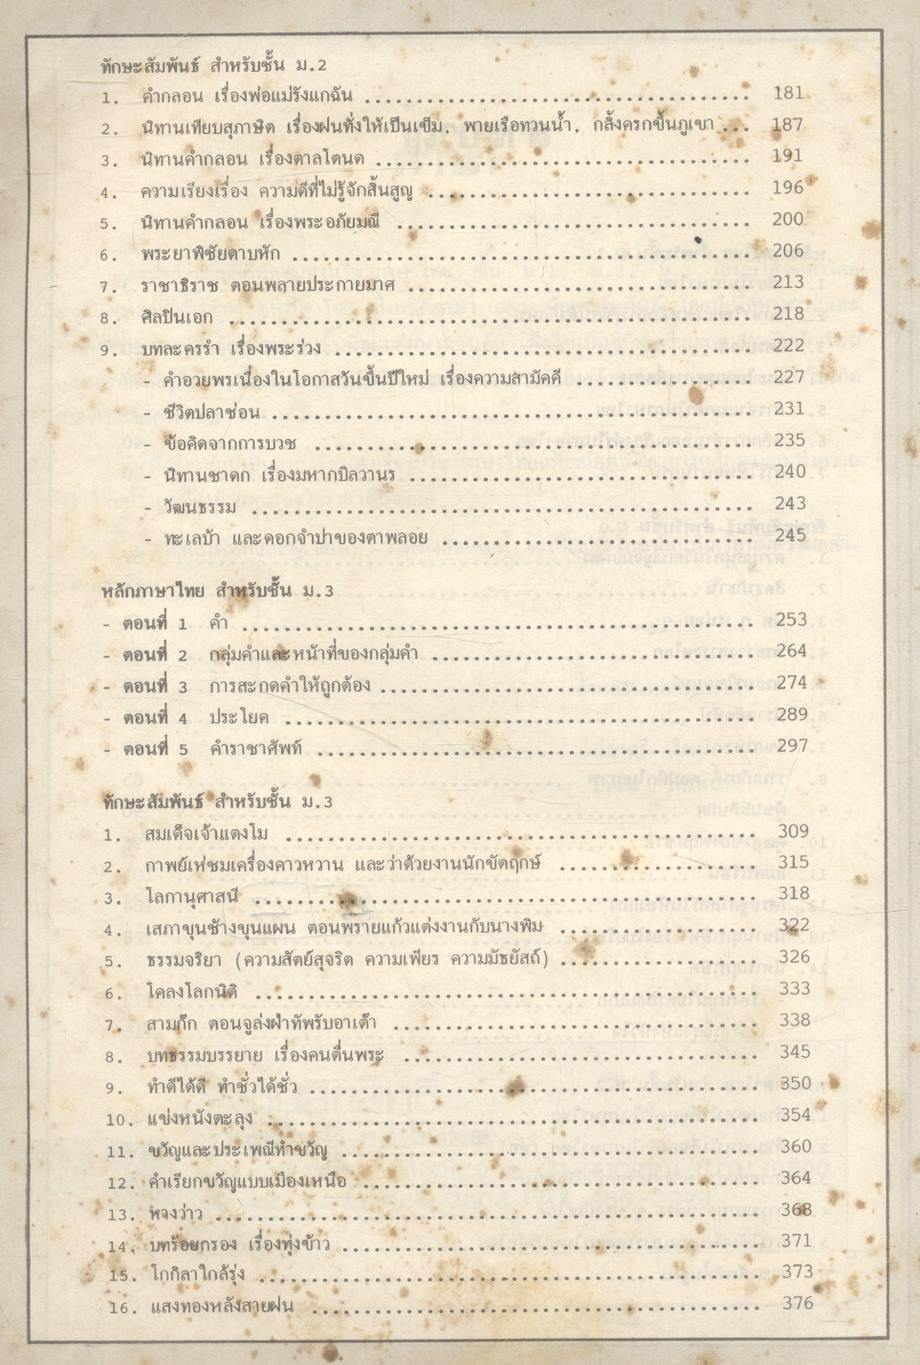 ทักษะสัมพันธ์ สำหรับชั้น ม.2
1. คำกลอน เรื่องพ่อแม่รังแกฉัน ........................................ 181
2. นิทานเทียบสุภาษิต เรื่องฝนทั่งให้เป็นเข็ม. พายเรือทวนน้ำ. กลิ้งครกขึ้นภูเขา ... 187
3. นิทานคำกลอน เรื่องตาลโตนด ....................................... 191
4. ความเรียงเรื่อง ความดีที่ไม่รู้จักสิ้นสูญ .................................. 196
5. นิทานคำกลอน เรื่องพระอภัยมณี ..................................... 200
6. พระยาพิชัยดาบหัก ................................................ 206
7. ราชาธิราช ตอนพลายประกายมาศ .................................... 213
8. ศิลปินเอก ...................................................... 218
9. บทละครรำ เรื่องพระร่วง ............................................ 222
- คำอวยพรเนื่องในโอกาสวันขึ้นปีใหม่ เรื่องความสามัคคี .................... 227
- ชีวิตปลาช่อน .................................................. 231
- ข้อคิดจากการบวช .............................................. 235
- นิทานชาดก เรื่องมหากบิลวานร .................................... 240
- วัฒนธรรม .................................................... 243
- ทะเลบ้า และดอกจำปาของตาพลอย ................................. 245
หลักภาษาไทย สำหรับชั้น ม.3
- ตอนที่ 1 คำ ..................................................... 253
- ตอนที่ 2 กลุ่มคำและหน้าที่ของกลุ่มคำ .................................. 264
- ตอนที่ 3 การสะกดคำให้ถูกต้อง ....................................... 274
- ตอนที่ 4 ประโยค ................................................. 289
- ตอนที่ 5 คำราชาศัพท์ .............................................. 297
ทักษะสัมพันธ์ สำหรับชั้น ม.3
1. สมเด็จเจ้าแตงโม ................................................. 309
2. กาพย์เห่ชมเครื่องคาวหวาน และว่าด้วยงานนักขัตฤกษ์ ..................... 315
3. โลกานุศาสนี .................................................... 318
4. เสภาขุนช้างขุนแผน ตอนพรายแก้วแต่งงานกับนางพิม ..................... 322
5. ธรรมจริยา (ความสัตย์สุจริต ความเพียร ความมัธยัสถ์) .................... 326
6. โคลงโลกนิติ .................................................... 333
7. สามก๊ก ตอนจูล่งฝ่าทัพรับอาเต๊า ...................................... 338
8. บทธรรมบรรยาย เรื่องคนตื่นพระ ..................................... 345
9. ทำดีได้ดี ทำชั่วได้ชั่ว ............................................... 350
10. แข่งหนังตะลุง ................................................... 354
11. ขวัญและประเพณีทำขวัญ ........................................... 360
12. คำเรียกขวัญแบบเมืองเหนือ ......................................... 364
13. หางว่าว ........................................................ 368
14. บทร้อยกรอง เรื่องทุ่งข้าว ........................................... 371
15. โกกิลาใกล้รุ่ง ................................................... 373
16. แสงทองหลังสายฝน .............................................. 376